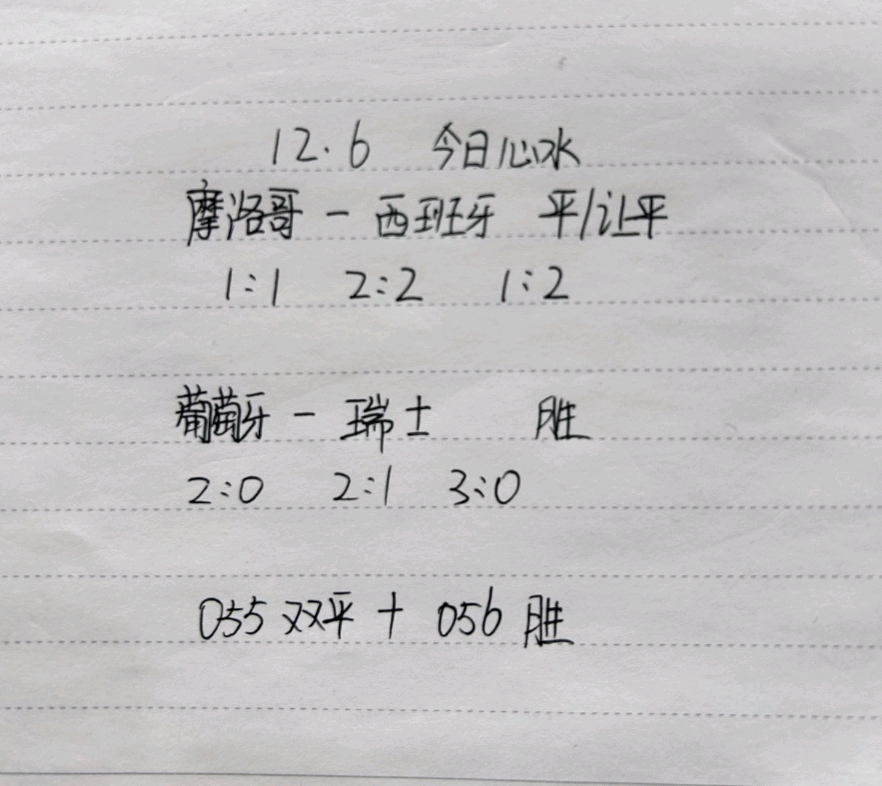 12.6 今日心水
摩洛哥 - 西班牙 平/让平
1:1 2:2 1:2
葡萄牙 - 瑞士 胜
2:0 2:1 3:0
055 双平 + 056 胜